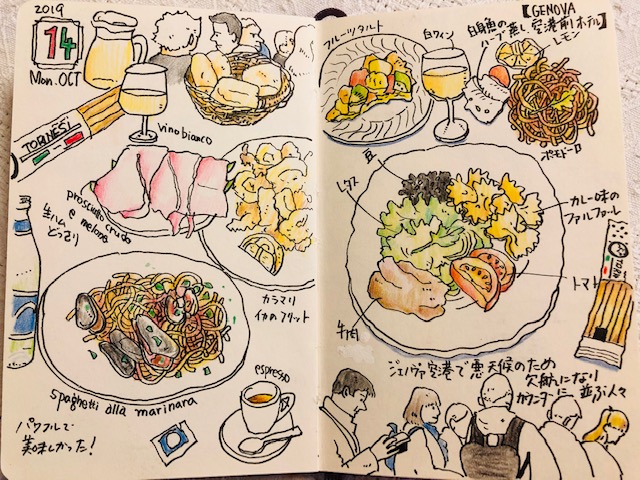 2019
14
Mon. OCT
TORINESI
vino bianco
prosciutto crudo
e melone
生ハム
どっさり
カラマリ
イカのフリット
spaghetti alla marinara
パワフルで
美味しかった!
espresso
【GENOVA
空港前ホテル】
フルーツタルト
白ワイン
白身魚の
ハーブ蒸し
レモン
ポモドーロ
豆
レタス
カレー味の
ファルファーレ
トマト
牛肉
ジェノヴァ空港で悪天候のため
欠航になり
カウンターに並ぶ人々